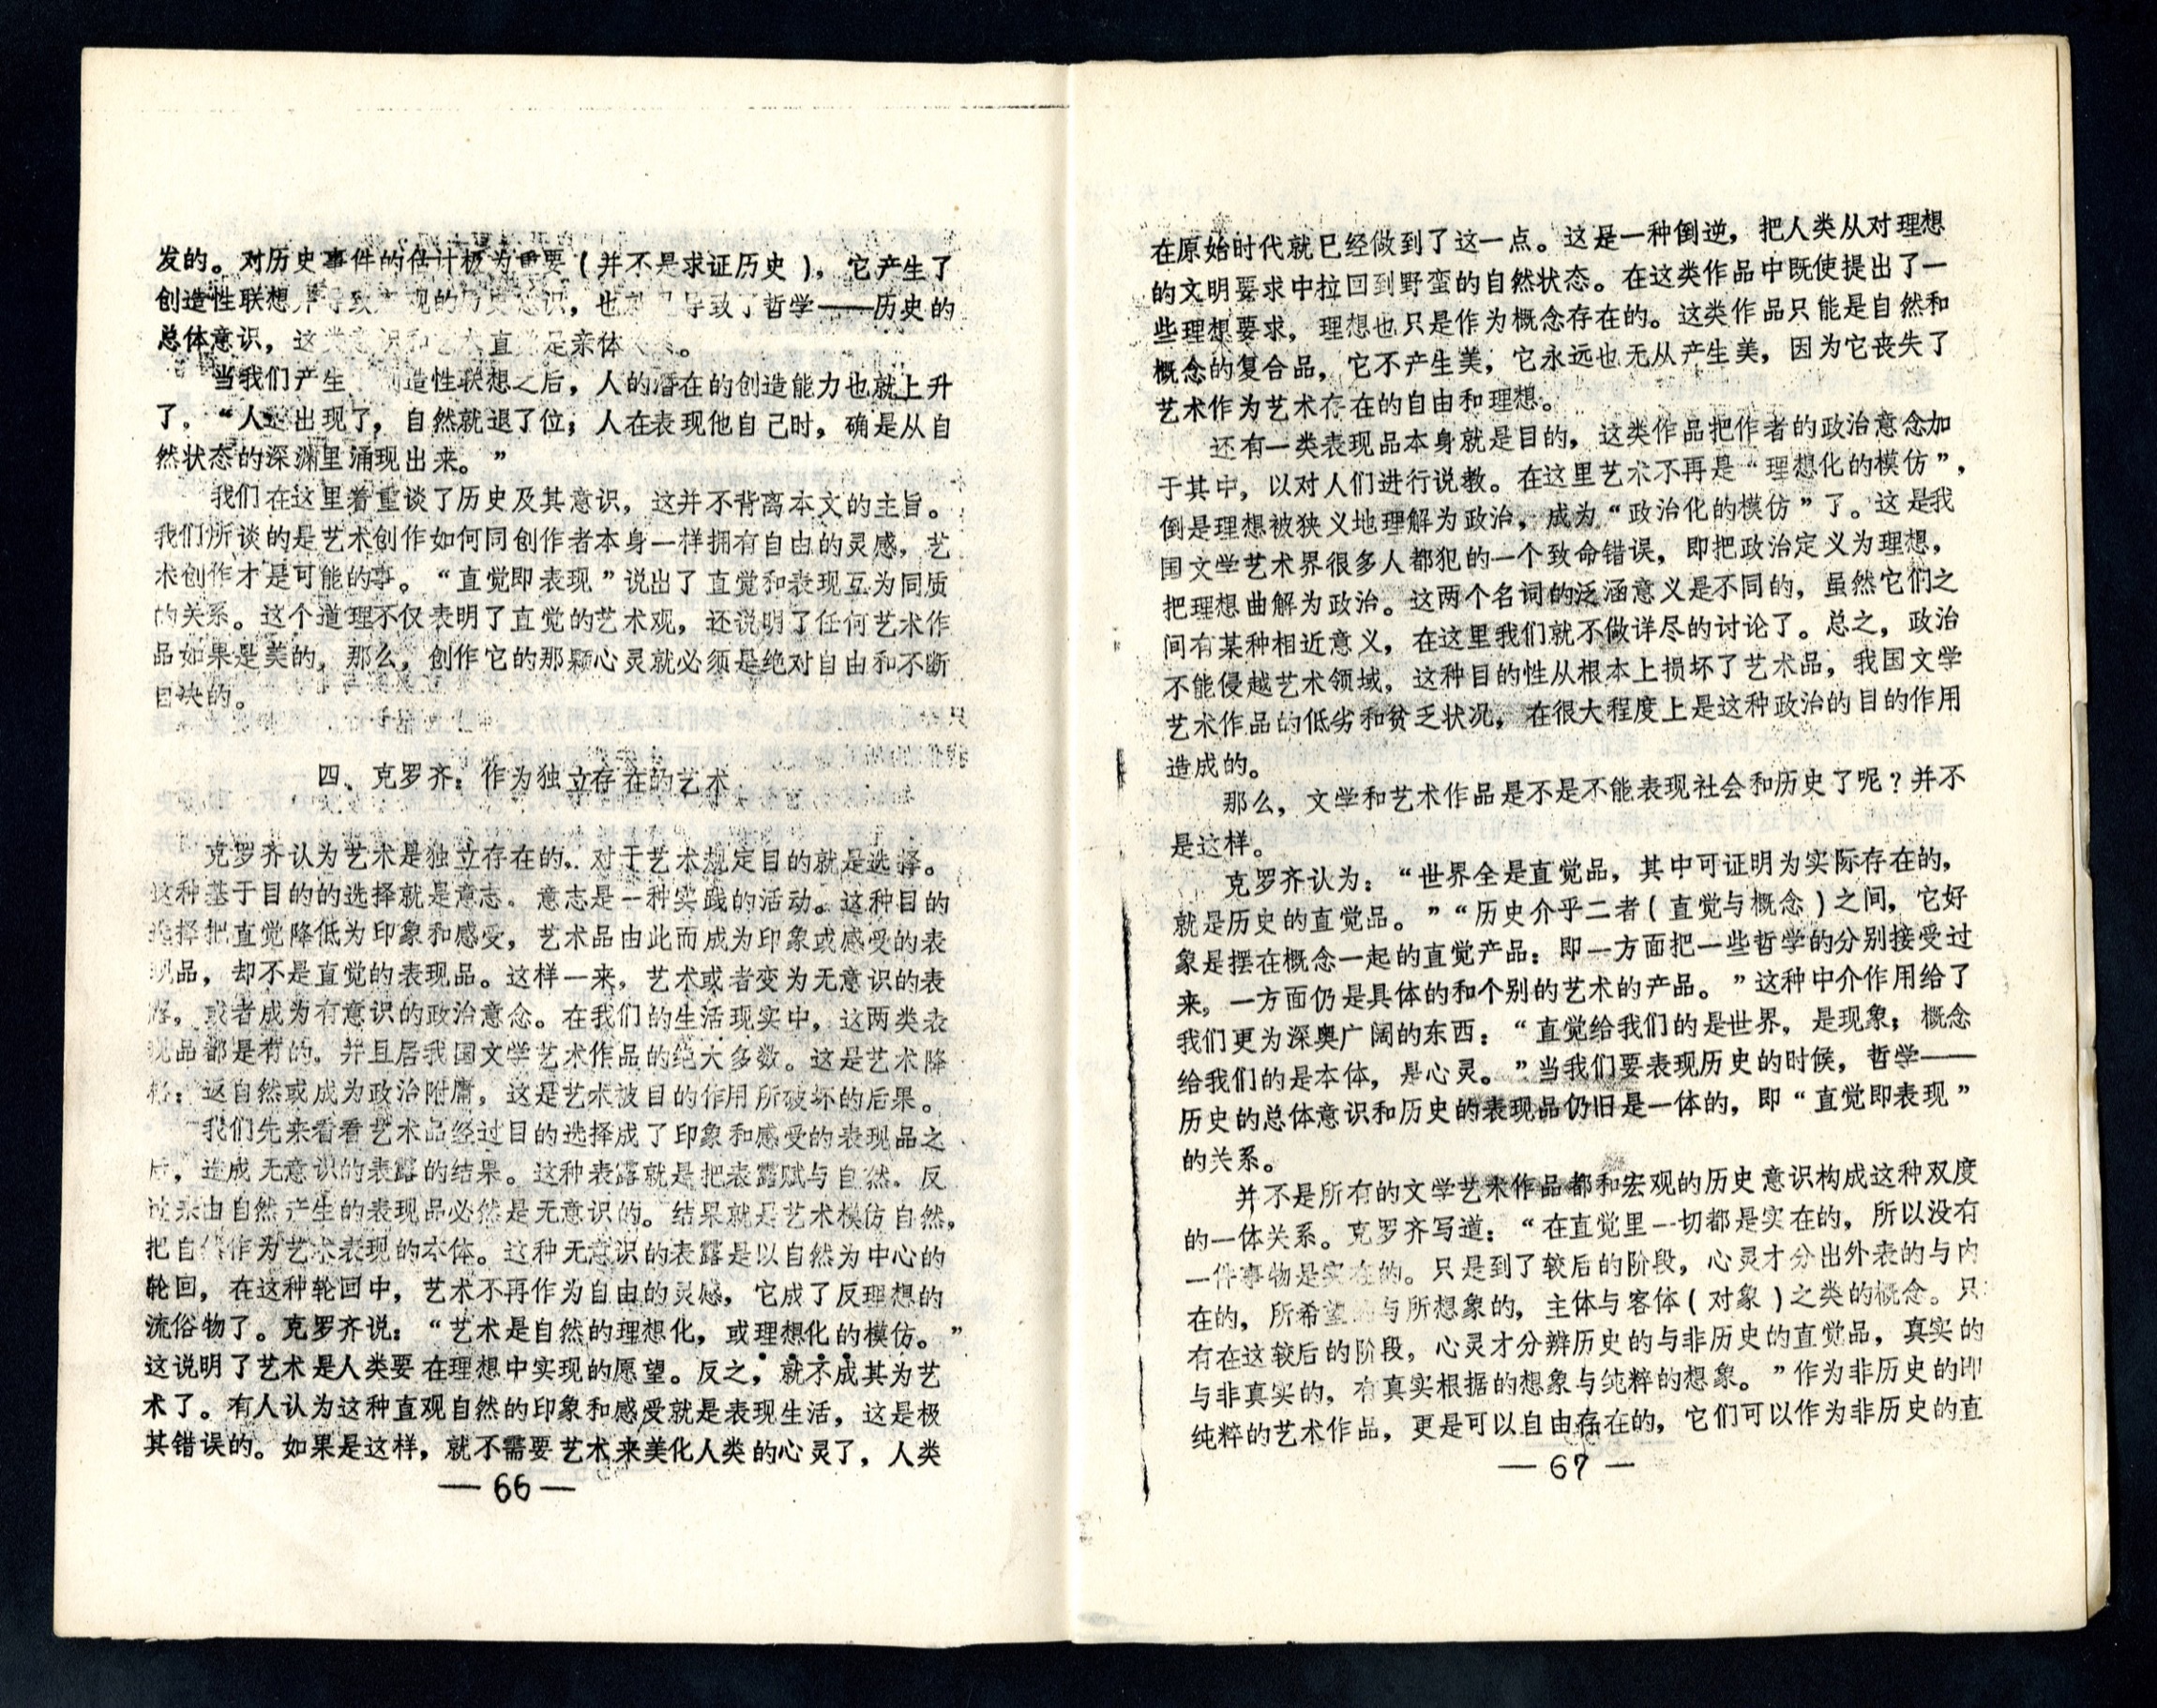 发的。对历史事件的估计极为重要(并不是求证历史),它产生了
创造性联想并导致 现的历史意识,也 导致了哲学——历史的
总体意识,这类意识和艺术直觉是亲体 。
当我们产生 造性联想之后,人的潜在的创造能力也就上升
了,“人 出现了,自然就退了位;人在表现他自己时,确是从自
然状态的深渊里涌现出来。”
我们在这里着重谈了历史及其意识,这并不背离本文的主旨。
我们所谈的是艺术创作如何同创作者本身一样拥有自由的灵感,艺
术创作才是可能的事。“直觉即表现”说出了直觉和表现互为同质
的关系。这个道理不仅表明了直觉的艺术观,还说明了任何艺术作
品如果是美的,那么,创作它的那颗心灵就必须是绝对自由和不断
自决的。
四、克罗齐:作为独立存在的艺术
克罗齐认为艺术是独立存在的。对于艺术规定目的就是选择。
这种基于目的的选择就是意志。意志是一种实践的活动。这种目的
选择把直觉降低为印象和感受,艺术品由此而成为印象或感受的表
现品,却不是直觉的表现品。这样一来,艺术或者变为无意识的表
露,或者成为有意识的政治意念。在我们的生活现实中,这两类表
现品都是有的,并且居我国文学艺术作品的绝大多数。这是艺术降
格:返自然或成为政治附庸,这是艺术被目的作用所破坏的后果。
我们先来看看艺术品经过目的选择成了印象和感受的表现品之
后,造成无意识的表露的结果。这种表露就是把表露赋与自然,反
过来由自然产生的表现品必然是无意识的。结果就是艺术模仿自然,
把自然作为艺术表现的本体。这种无意识的表露是以自然为中心的
轮回,在这种轮回中,艺术不再作为自由的灵感,它成了反理想的
流俗物了。克罗齐说:“艺术是自然的理想化,或理想化的模仿。”
这说明了艺术是人类要在理想中实现的愿望。反之,就不成其为艺
术了。有人认为这种直观自然的印象和感受就是表现生活,这是极
其错误的。如果是这样,就不需要艺术来美化人类的心灵了,人类
—66—
在原始时代就已经做到了这一点。这是一种倒逆,把人类从对理想
的文明要求中拉回到野蛮的自然状态。在这类作品中既使提出了一
些理想要求,理想也只是作为概念存在的。这类作品只能是自然和
概念的复合品,它不产生美,它永远也无从产生美,因为它丧失了
艺术作为艺术存在的自由和理想。
还有一类表现品本身就是目的,这类作品把作者的政治意念加
于其中,以对人们进行说教。在这里艺术不再是“理想化的模仿”,
倒是理想被狭义地理解为政治,成为“政治化的模仿”了。这是我
国文学艺术界很多人都犯的一个致命错误,即把政治定义为理想,
把理想曲解为政治。这两个名词的泛涵意义是不同的,虽然它们之
间有某种相近意义,在这里我们就不做详尽的讨论了。总之,政治
不能侵越艺术领域,这种目的性从根本上损坏了艺术品,我国文学
艺术作品的低劣和贫乏状况,在很大程度上是这种政治的目的作用
造成的。
那么,文学和艺术作品是不是不能表现社会和历史了呢?并不
是这样。
克罗齐认为:“世界全是直觉品,其中可证明为实际存在的,
就是历史的直觉品。”“历史介乎二者(直觉与概念)之间,它好
象是摆在概念一起的直觉产品:即一方面把一些哲学的分别接受过
来,一方面仍是具体的和个别的艺术的产品。”这种中介作用给了
我们更为深奥广阔的东西:“直觉给我们的是世界,是现象;概念
给我们的是本体,是心灵。”当我们要表现历史的时候,哲学——
历史的总体意识和历史的表现品仍旧是一体的,即“直觉即表现”
的关系。
并不是所有的文学艺术作品都和宏观的历史意识构成这种双度
的一体关系。克罗齐写道:“在直觉里一切都是实在的,所以没有
一件事物是实在的。只是到了较后的阶段,心灵才分出外表的与内
在的,所希望的与所想象的,主体与客体(对象)之类的概念。只
有在这较后的阶段,心灵才分辨历史的与非历史的直觉品,真实的
与非真实的,有真实根据的想象与纯粹的想象。”作为非历史的即
纯粹的艺术作品,更是可以自由存在的,它们可以作为非历史的直
—67—